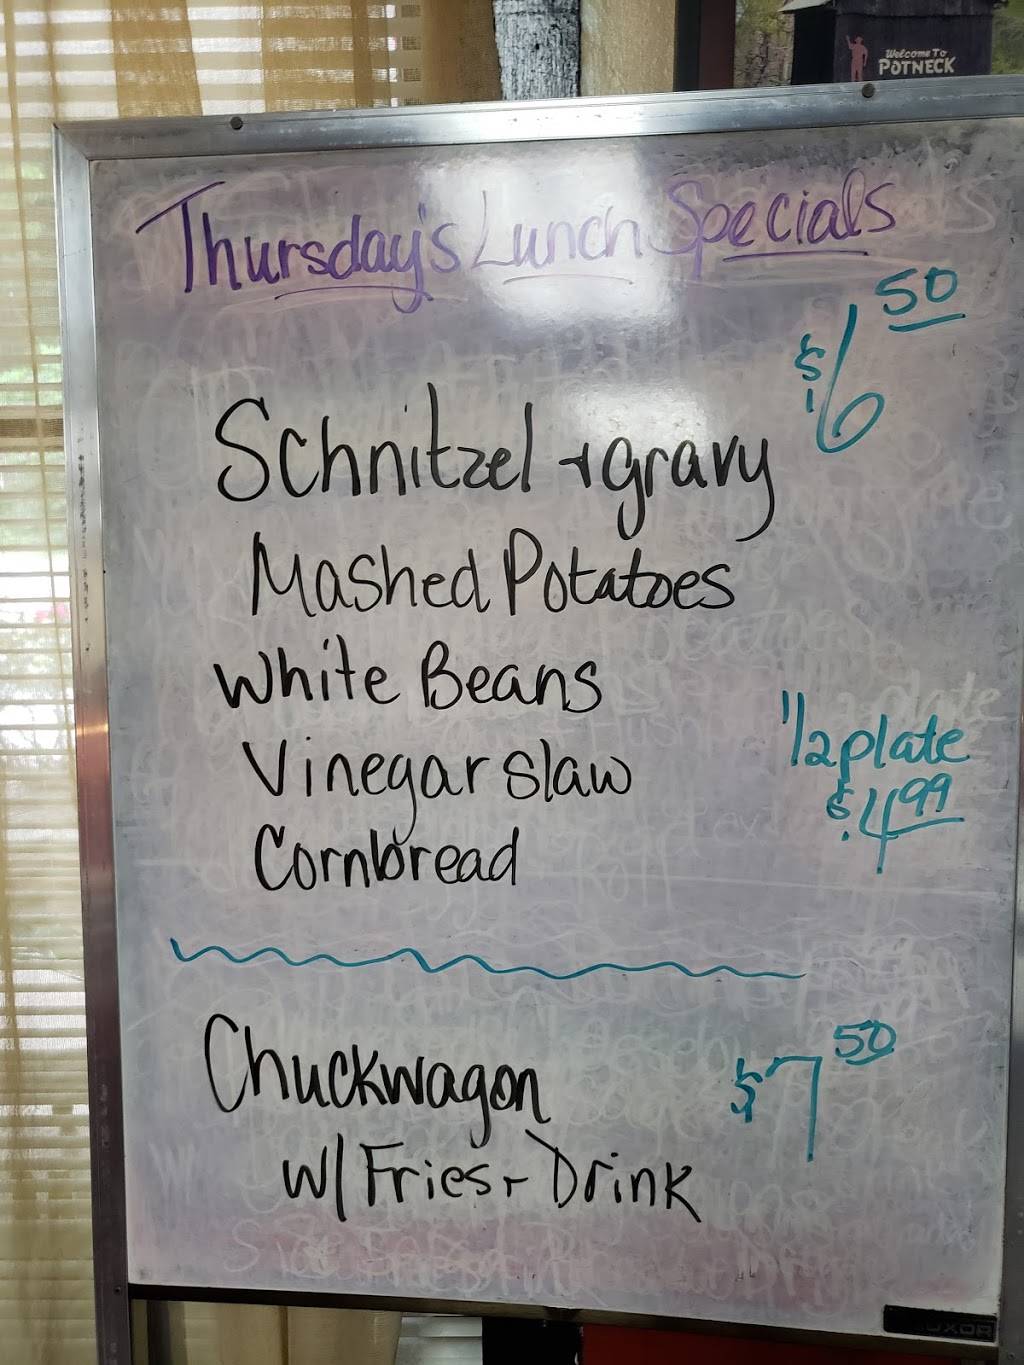 Welcome To
POTNECK
Thursday's Lunch Specials
$6 50
Schnitzel + gravy
Mashed Potatoes
White Beans
Vinegar slaw
1/2 plate
$4 99
Cornbread
Chuckwagon
$7 50
w/ Fries + Drink